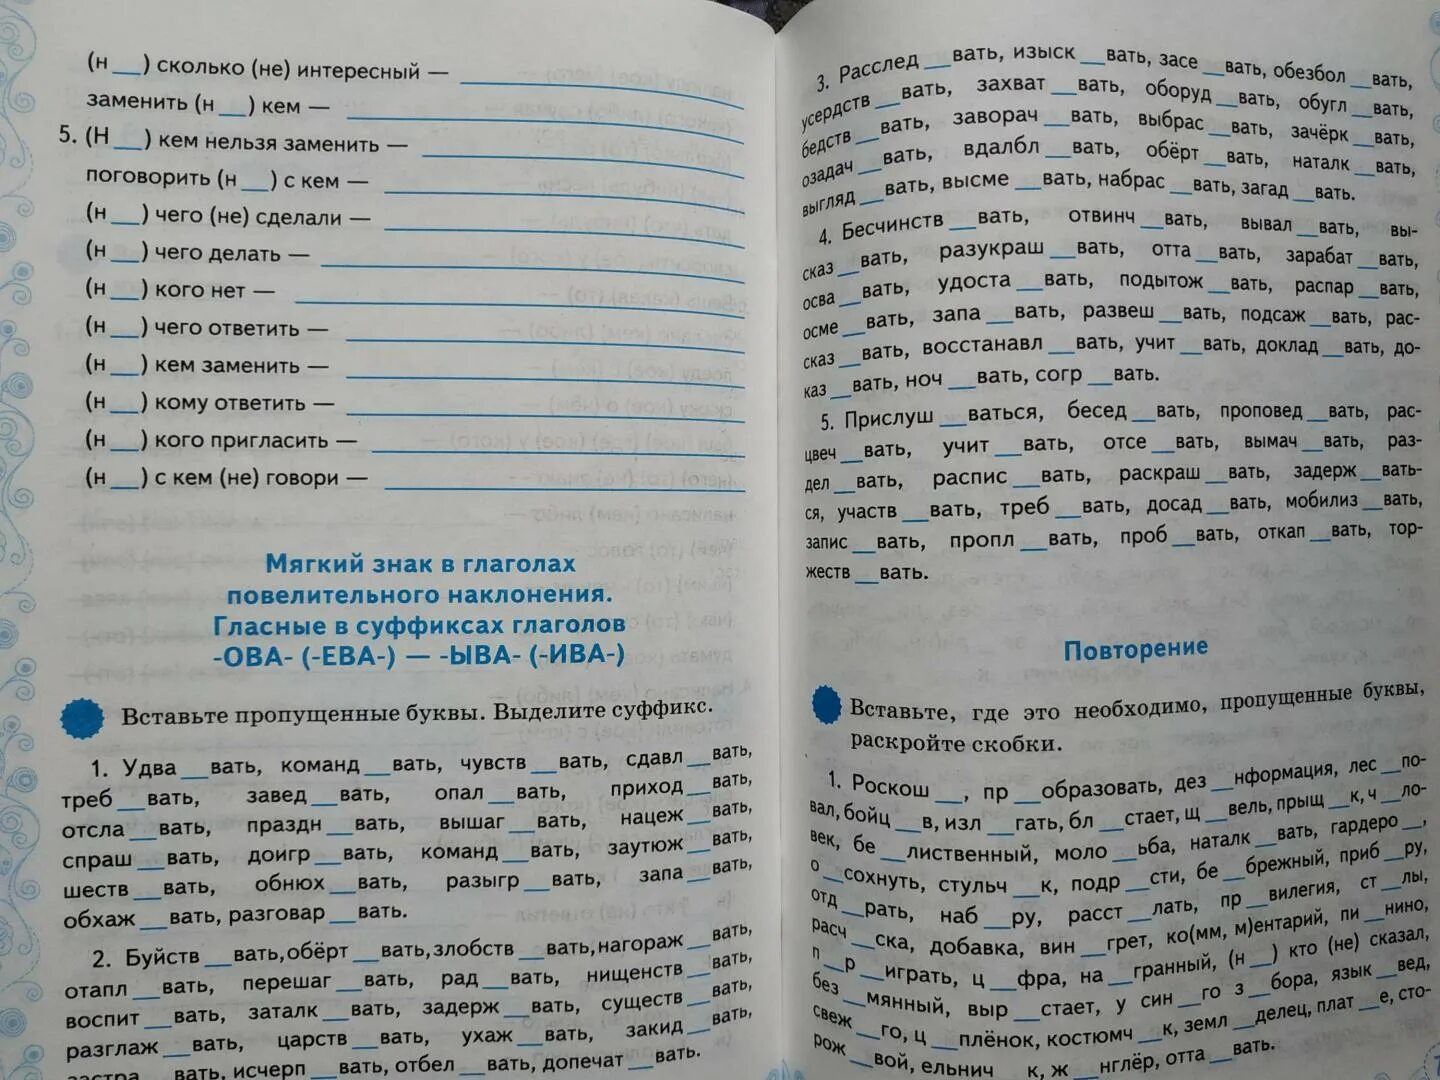 (н __ ) сколько (не) интересный —
заменить (н __ ) кем —
5. (Н __ ) кем нельзя заменить —
поговорить (н __ ) с кем —
(н __ ) чего (не) сделали —
(н __ ) чего делать —
(н __ ) кого нет —
(н __ ) чего ответить —
(н __ ) кем заменить —
(н __ ) кому ответить —
(н __ ) кого пригласить —
(н __ ) с кем (не) говори —
Мягкий знак в глаголах
повелительного наклонения.
Гласные в суффиксах глаголов
-ОВА- (-ЕВА-) — -ЫВА- (-ИВА-)
Вставьте пропущенные буквы. Выделите суффикс.
1. Удва __ вать, команд __ вать, чувств __ вать, сдавл __ вать,
треб __ вать, завед __ вать, опал __ вать, приход __ вать,
отсла __ вать, праздн __ вать, вышаг __ вать, нацеж __ вать,
спраш __ вать, доигр __ вать, команд __ вать, заутюж __ вать,
шеств __ вать, обнюх __ вать, разыгр __ вать, запа __ вать,
обхаж __ вать, разговар __ вать.
2. Буйств __ вать, обёрт __ вать, злобств __ вать, нагораж __ вать,
отапл __ вать, перешаг __ вать, рад __ вать, нищенств __ вать,
воспит __ вать, заталк __ вать, задерж __ вать, существ __ вать,
разглаж __ вать, царств __ вать, ухаж __ вать, закид __ вать,
застра __ вать, исчерп __ вать, отбел __ вать, допечат __ вать.
3. Расслед __ вать, изыск __ вать, засе __ вать, обезбол __ вать,
усердств __ вать, захват __ вать, оборуд __ вать, обугл __ вать,
бедств __ вать, заворач __ вать, выбрас __ вать, зачёрк __ вать,
озадач __ вать, вдалбл __ вать, обёрт __ вать, наталк __ вать,
выгляд __ вать, высме __ вать, набрас __ вать, загад __ вать.
4. Бесчинств __ вать, отвинч __ вать, вывал __ вать, вы-
сказ __ вать, разукраш __ вать, отта __ вать, зарабат __ вать,
осва __ вать, удоста __ вать, подытож __ вать, распар __ вать,
осме __ вать, запа __ вать, развеш __ вать, подсаж __ вать, рас-
сказ __ вать, восстанавл __ вать, учит __ вать, доклад __ вать, до-
каз __ вать, ноч __ вать, согр __ вать.
5. Прислуш __ ваться, бесед __ вать, проповед __ вать, рас-
цвеч __ вать, учит __ вать, отсе __ вать, вымач __ вать, раз-
дел __ вать, распис __ вать, раскраш __ вать, задерж __ вать-
ся, участв __ вать, треб __ вать, досад __ вать, мобилиз __ вать,
запис __ вать, пропл __ вать, проб __ вать, откап __ вать, тор-
жеств __ вать.
Повторение
Вставьте, где это необходимо, пропущенные буквы,
раскройте скобки.
1. Роскош __ , пр __ образовать, дез __ нформация, лес __ по-
вал, бойц __ в, изл __ гать, бл __ стает, щ __ вель, прыщ __ к, ч __ ло-
век, бе __ лиственный, моло __ ьба, наталк __ вать, гардеро __ ,
о __ сохнуть, стульч __ к, подр __ сти, бе __ брежный, приб __ ру,
отд __ рать, наб __ ру, расст __ лать, пр __ вилегия, ст __ лы,
расч __ ска, добавка, вин __ грет, ко(мм, м)ентарий, пи __ нино,
п __ р __ играть, ц __ фра, на __ гранный, (н __ ) кто (не) сказал,
без __ мянный, выр __ стает, у син __ го з __ бора, язык __ вед,
свеж __ го, ц __ плёнок, костюмч __ к, земл __ делец, плат __ е, сто-
рож __ вой, ельнич __ к, ж __ нглёр, отта __ вать.